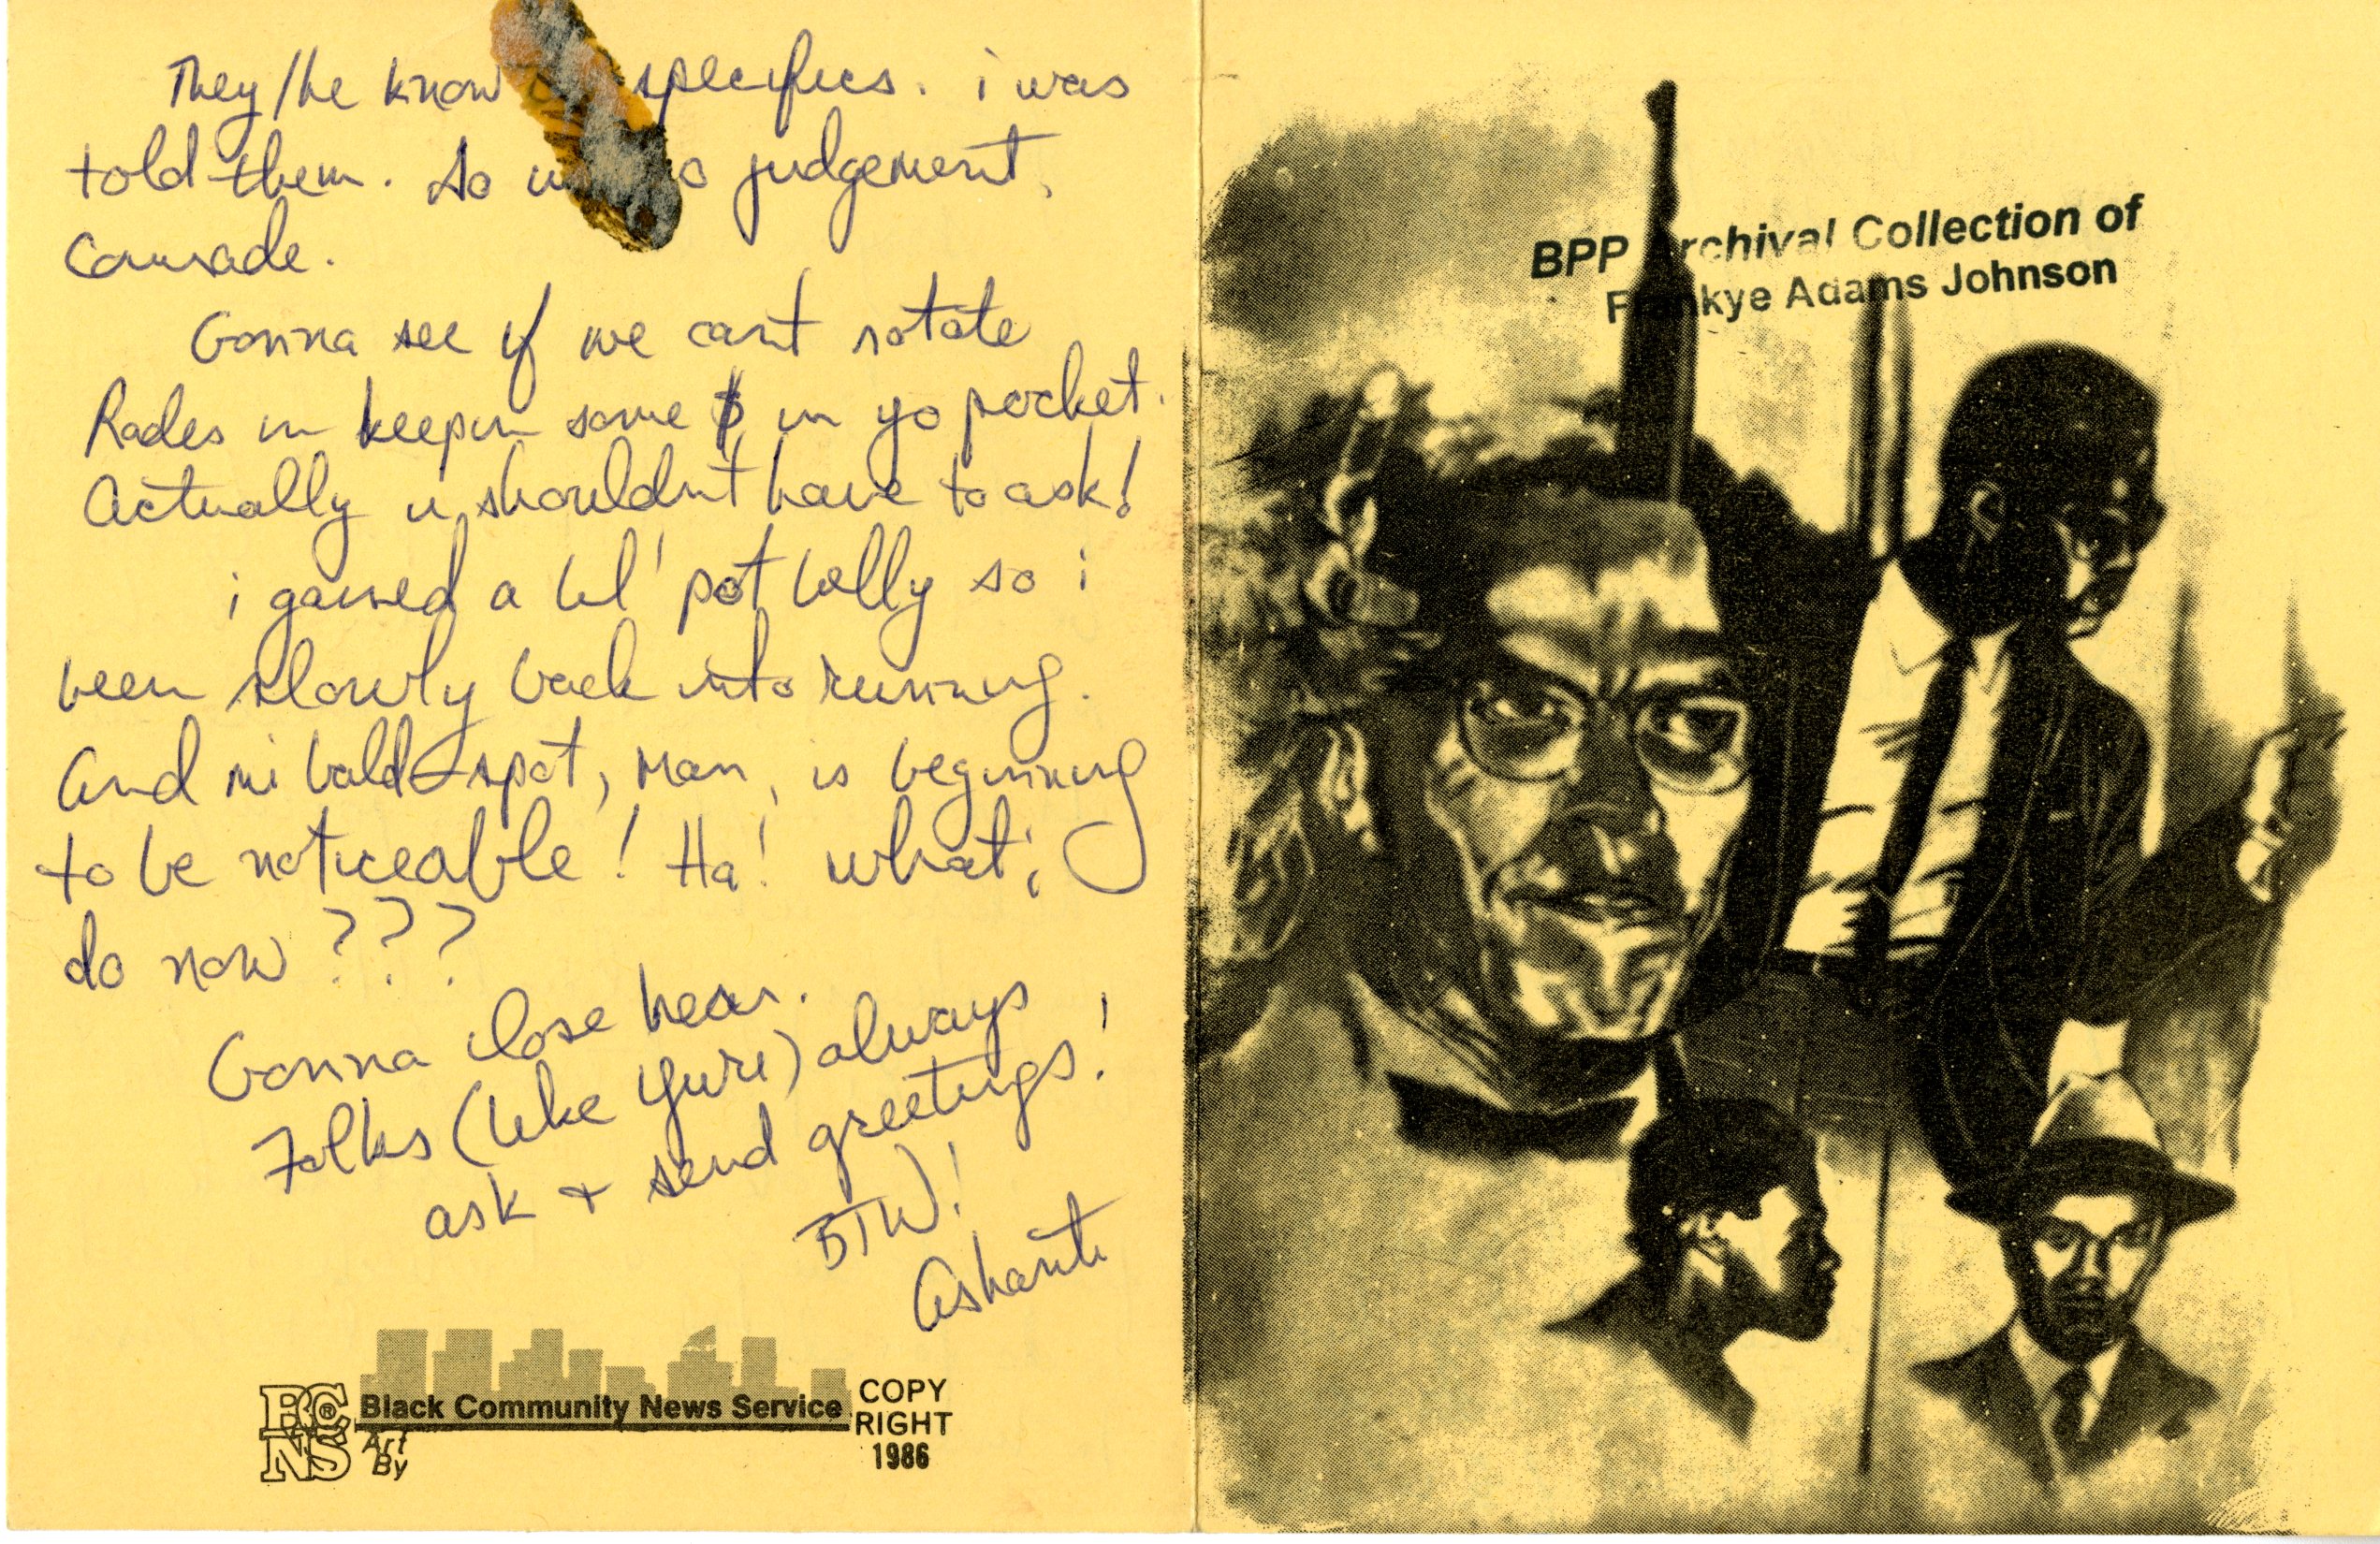 They/he know specifics. i was
told them. So no judgement,
Comrade.
Gonna see if we can't rotate
Rades in keepin some $ in yo pocket.
Actually u shouldn't have to ask!
i gained a lil' pot belly so i
been slowly back into running.
And mi bald-spot, man, is beginning
to be noticeable! Ha! what i
do now???
Gonna close hear.
Folks (like Yuri) always
ask + send greetings!
BTW!
Ashanti
BCNS ® Black Community News Service
Art
By
COPY
RIGHT
1986
BPP Archival Collection of
Frankye Adams Johnson